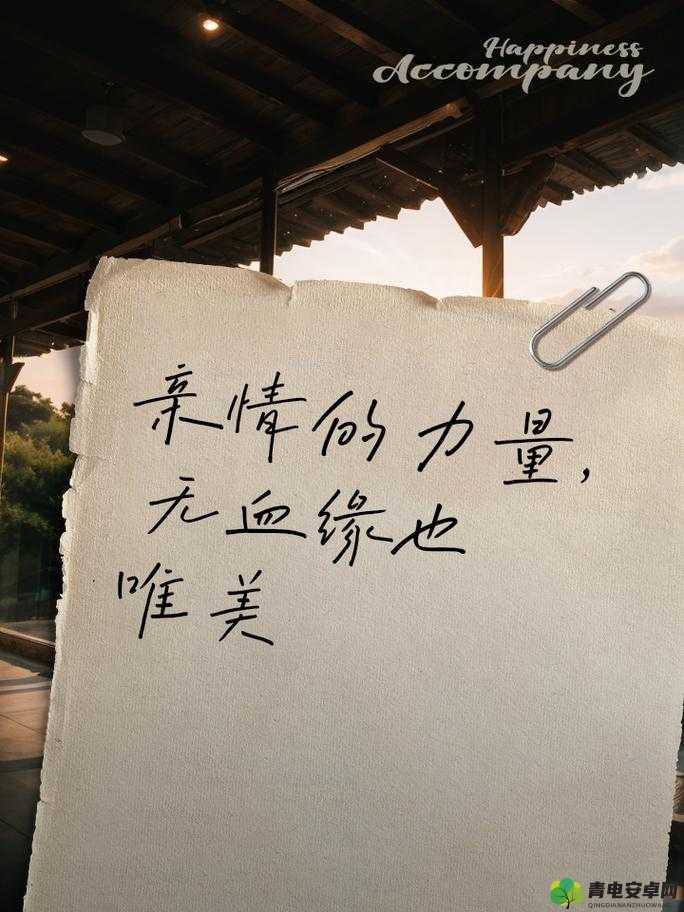 Happiness
Accompany
亲情的力量,
无血缘也
唯美
青电安卓网
QINGDIANANZHUOWANG